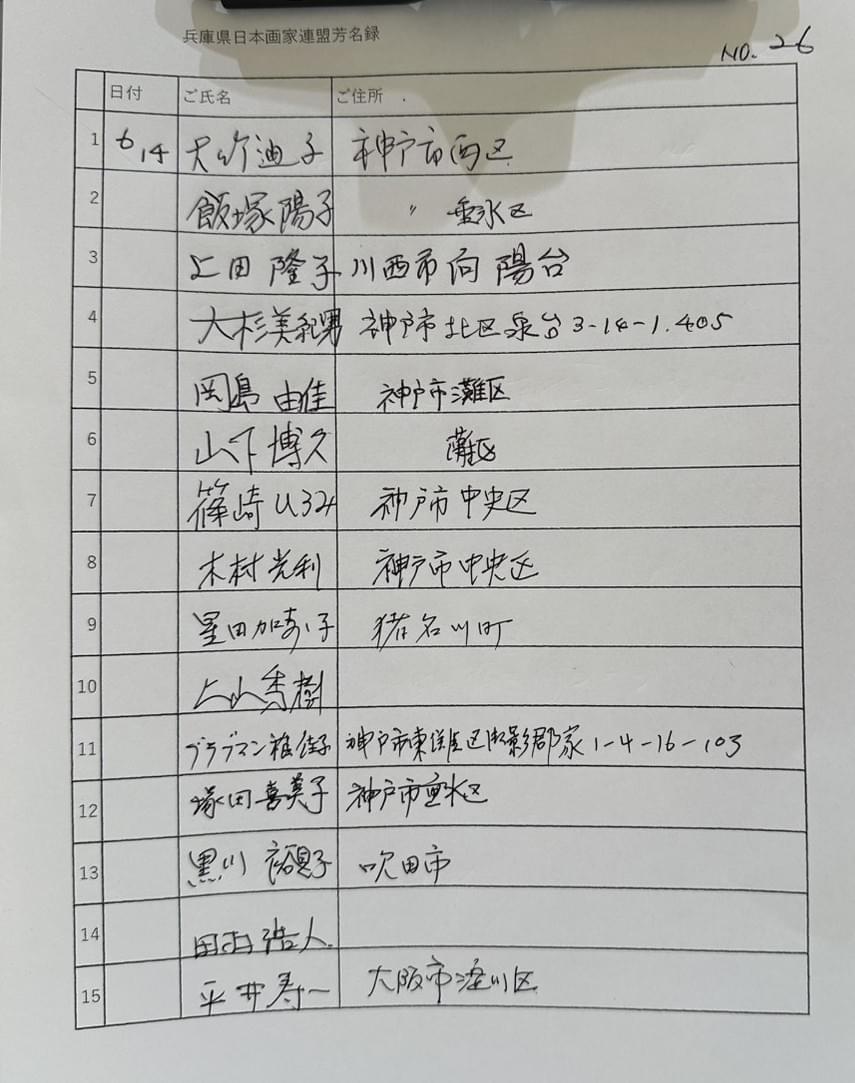 兵庫県日本画家連盟芳名録
NO. 26
日付 ご氏名 ご住所
1 6/14 大竹迪子 神戸市西区
2 飯塚陽子 〃 垂水区
3 上田隆子 川西市向陽台
4 大杉美紀男 神戸市北区泉台3-14-1.405
5 岡島由佳 神戸市灘区
6 山下博久 灘区
7 篠崎 神戸市中央区
8 木村光利 神戸市中央区
9 星田加寿子 猪名川町
10 上山秀樹
11 ブラブマン雅佳子 神戸市東灘区御影郡家1-4-16-103
12 塚田喜美子 神戸市垂水区
13 黒川裕見子 吹田市
14 田西浩人
15 平井寿一 大阪市淀川区